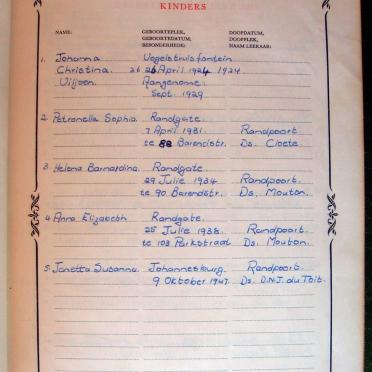 KINDERS
NAME: GEBOORTEPLEK, DOOPDATUM,
GEBOORTEDATUM, DOOPPLEK,
BESONDERHEDE: NAAM LERAAR:
1. Johanna Vogelstruisfontein
Christina. 26 April 1924 1924.
Viljoen. Aangeneme:
Sept. 1929
2. Petronella Sophia. Randgate.
7 April 1931. Randpoort
te 88 Barendstr. Ds. Cloete.
3. Helena Barnardina. Randgate.
29 Julie 1934 Randpoort.
te 90 Barendstr. Ds. Mouton.
4. Anna Elizabeth Randgate.
25 Julie 1938. Randpoort.
te 103 Parkstraat Ds. Mouton.
5. Janetta Susanna. Johannesburg. Randpoort.
9 Oktober 1947. Ds. D.N.J. du Toit.